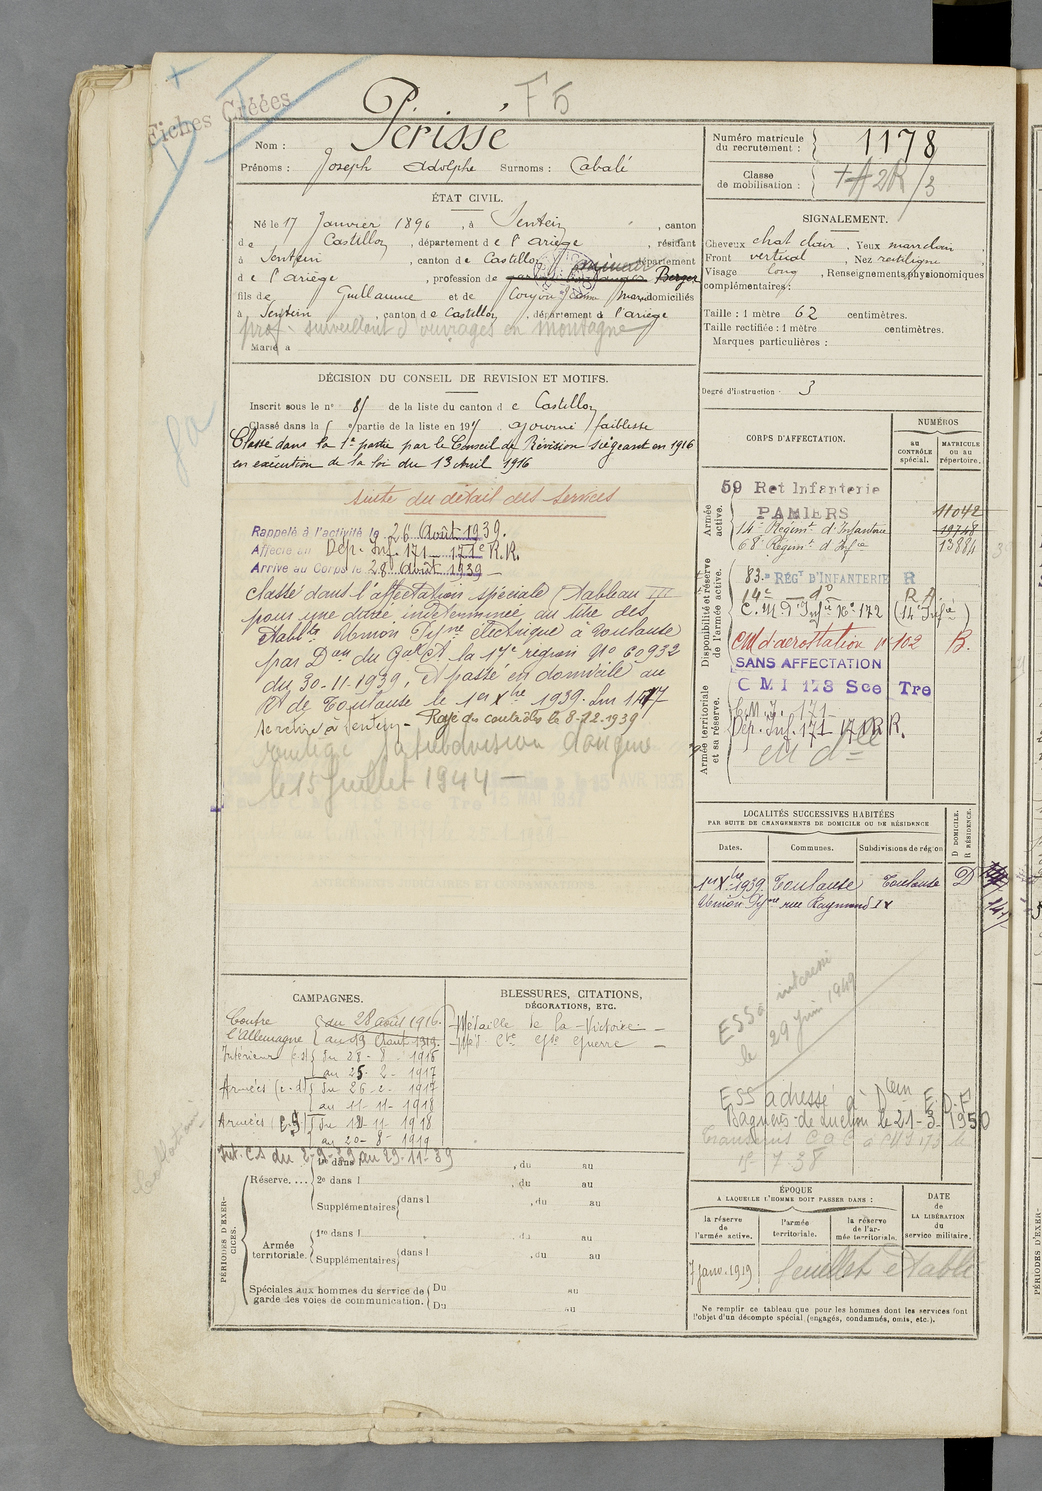 Fiches Créées
F5
Nom : Périssé
Prénoms : Joseph Adolphe Surnoms : Cabalé
ÉTAT CIVIL.
Né le 17 Janvier 1896, à Sentein, canton
de Castillon, département de l'Ariège, résidant
à Sentein, canton de Castillon, département
de l'Ariège, profession de Berger
fils de Guillaume et de domiciliés
à Sentein, canton de Castillon, département de l'Ariège
prof. surveillant d'ouvrages en montagne
Marié à
DÉCISION DU CONSEIL DE REVISION ET MOTIFS.
Inscrit sous le n° 81 de la liste du canton de Castillon
Classé dans la 5e partie de la liste en 191 ajourné faiblesse
Classé dans la 1e partie par le Conseil de Révision siégeant en 1916
en exécution de la loi du 13 Avril 1916
suite du détail des services
Rappelé à l'activité le 26 Août 1939.
Affecté au Dép. Inf. 171 - 171e R.R.
Arrivé au Corps le 28 Août 1939
Classé dans l'affectation spéciale (Tableau III
pour une durée indéterminée au titre des
Etabts Union Pyrne électrique à Toulouse
par Don du Gal Ct la 17e region No 60932
du 30-11-1939, et passé en domicile au
Rt de Toulouse le 1er Xbre 1939. Sur 1147
Se retire à Sentein - Rayé des contrôles le 8-12-1939
sa subdivision d'origine
le 15 Juillet 1944 -
CAMPAGNES.
Contre l'Allemagne du 28 août 1916.
au 19 Août 1919.
Intérieur (c.s) du 28 - 8 - 1916
au 25 - 2 - 1917
Armées (c.d) du 26 - 2 - 1917
au 11 - 11 - 1918
Armées (c.s) du 12 - 11 - 1918
au 20 - 8 - 1919
Int. CS du 2-9-39 au 29-11-39
BLESSURES, CITATIONS,
DÉCORATIONS, ETC.
Médaille de la Victoire -
Méd. Cve Gde Guerre -
PÉRIODES D'EXERCICES.
Réserve.... 1re dans l , du au
2e dans l , du au
Supplémentaires dans l , du au
Armée territoriale. 1re dans l , du au
Supplémentaires dans l , du au
Spéciales aux hommes du service de garde des voies de communication. Du au
Du au
Numéro matricule du recrutement : 1178
Classe de mobilisation :
SIGNALEMENT.
Cheveux chat clair. Yeux marron clair,
Front vertical, Nez rectiligne,
Visage long, Renseignements physionomiques
complémentaires :
Taille : 1 mètre 62 centimètres.
Taille rectifiée : 1 mètre centimètres.
Marques particulières :
Degré d'instruction : 3
CORPS D'AFFECTATION.
NUMÉROS
au CONTRÔLE spécial.
MATRICULE ou au répertoire.
Armée active.
59 Ret Infanterie
PAMIERS 11042
14e Régimt d'Infanterie 19748
68e Régimt d'Infie 13884
Disponibilité et réserve de l'armée active.
83e RÉGt D'INFANTERIE R
14e do R.A.
C.M. d'Infie No 172 (14e Infie)
CM d'aérostation no 102 B.
SANS AFFECTATION
Armée territoriale et sa réserve.
C M I 173 Sce Tre
C.M.I. 171
Dép. Inf. 171 - 171 R.R.
LOCALITÉS SUCCESSIVES HABITÉES
PAR SUITE DE CHANGEMENTS DE DOMICILE OU DE RÉSIDENCE
Dates. Communes. Subdivisions de région
D DOMICILE. R RÉSIDENCE.
1er Xbre 1939. Toulouse Toulouse D
Union Pyrne rue Raymond IV
ESS interessé
le 29 juin 1949
ESS adressé à Dom E.D.F
Bagnères-de-Luchon le 21-3-1950
Transmis CM I 173 le
15-7-38
ÉPOQUE
A LAQUELLE L'HOMME DOIT PASSER DANS :
la réserve de l'armée active.
l'armée territoriale.
la réserve de l'armée territoriale.
DATE DE LA LIBÉRATION du service militaire.
7 janv. 1919 feuillet établi
Ne remplir ce tableau que pour les hommes dont les services font
l'objet d'un décompte spécial (engagés, condamnés, omis, etc.).